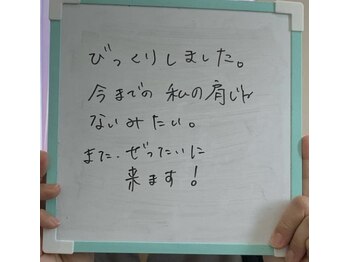 びっくりしました。
今までの 私の肩じゃ
ないみたい。
また、ぜったいに
来ます!